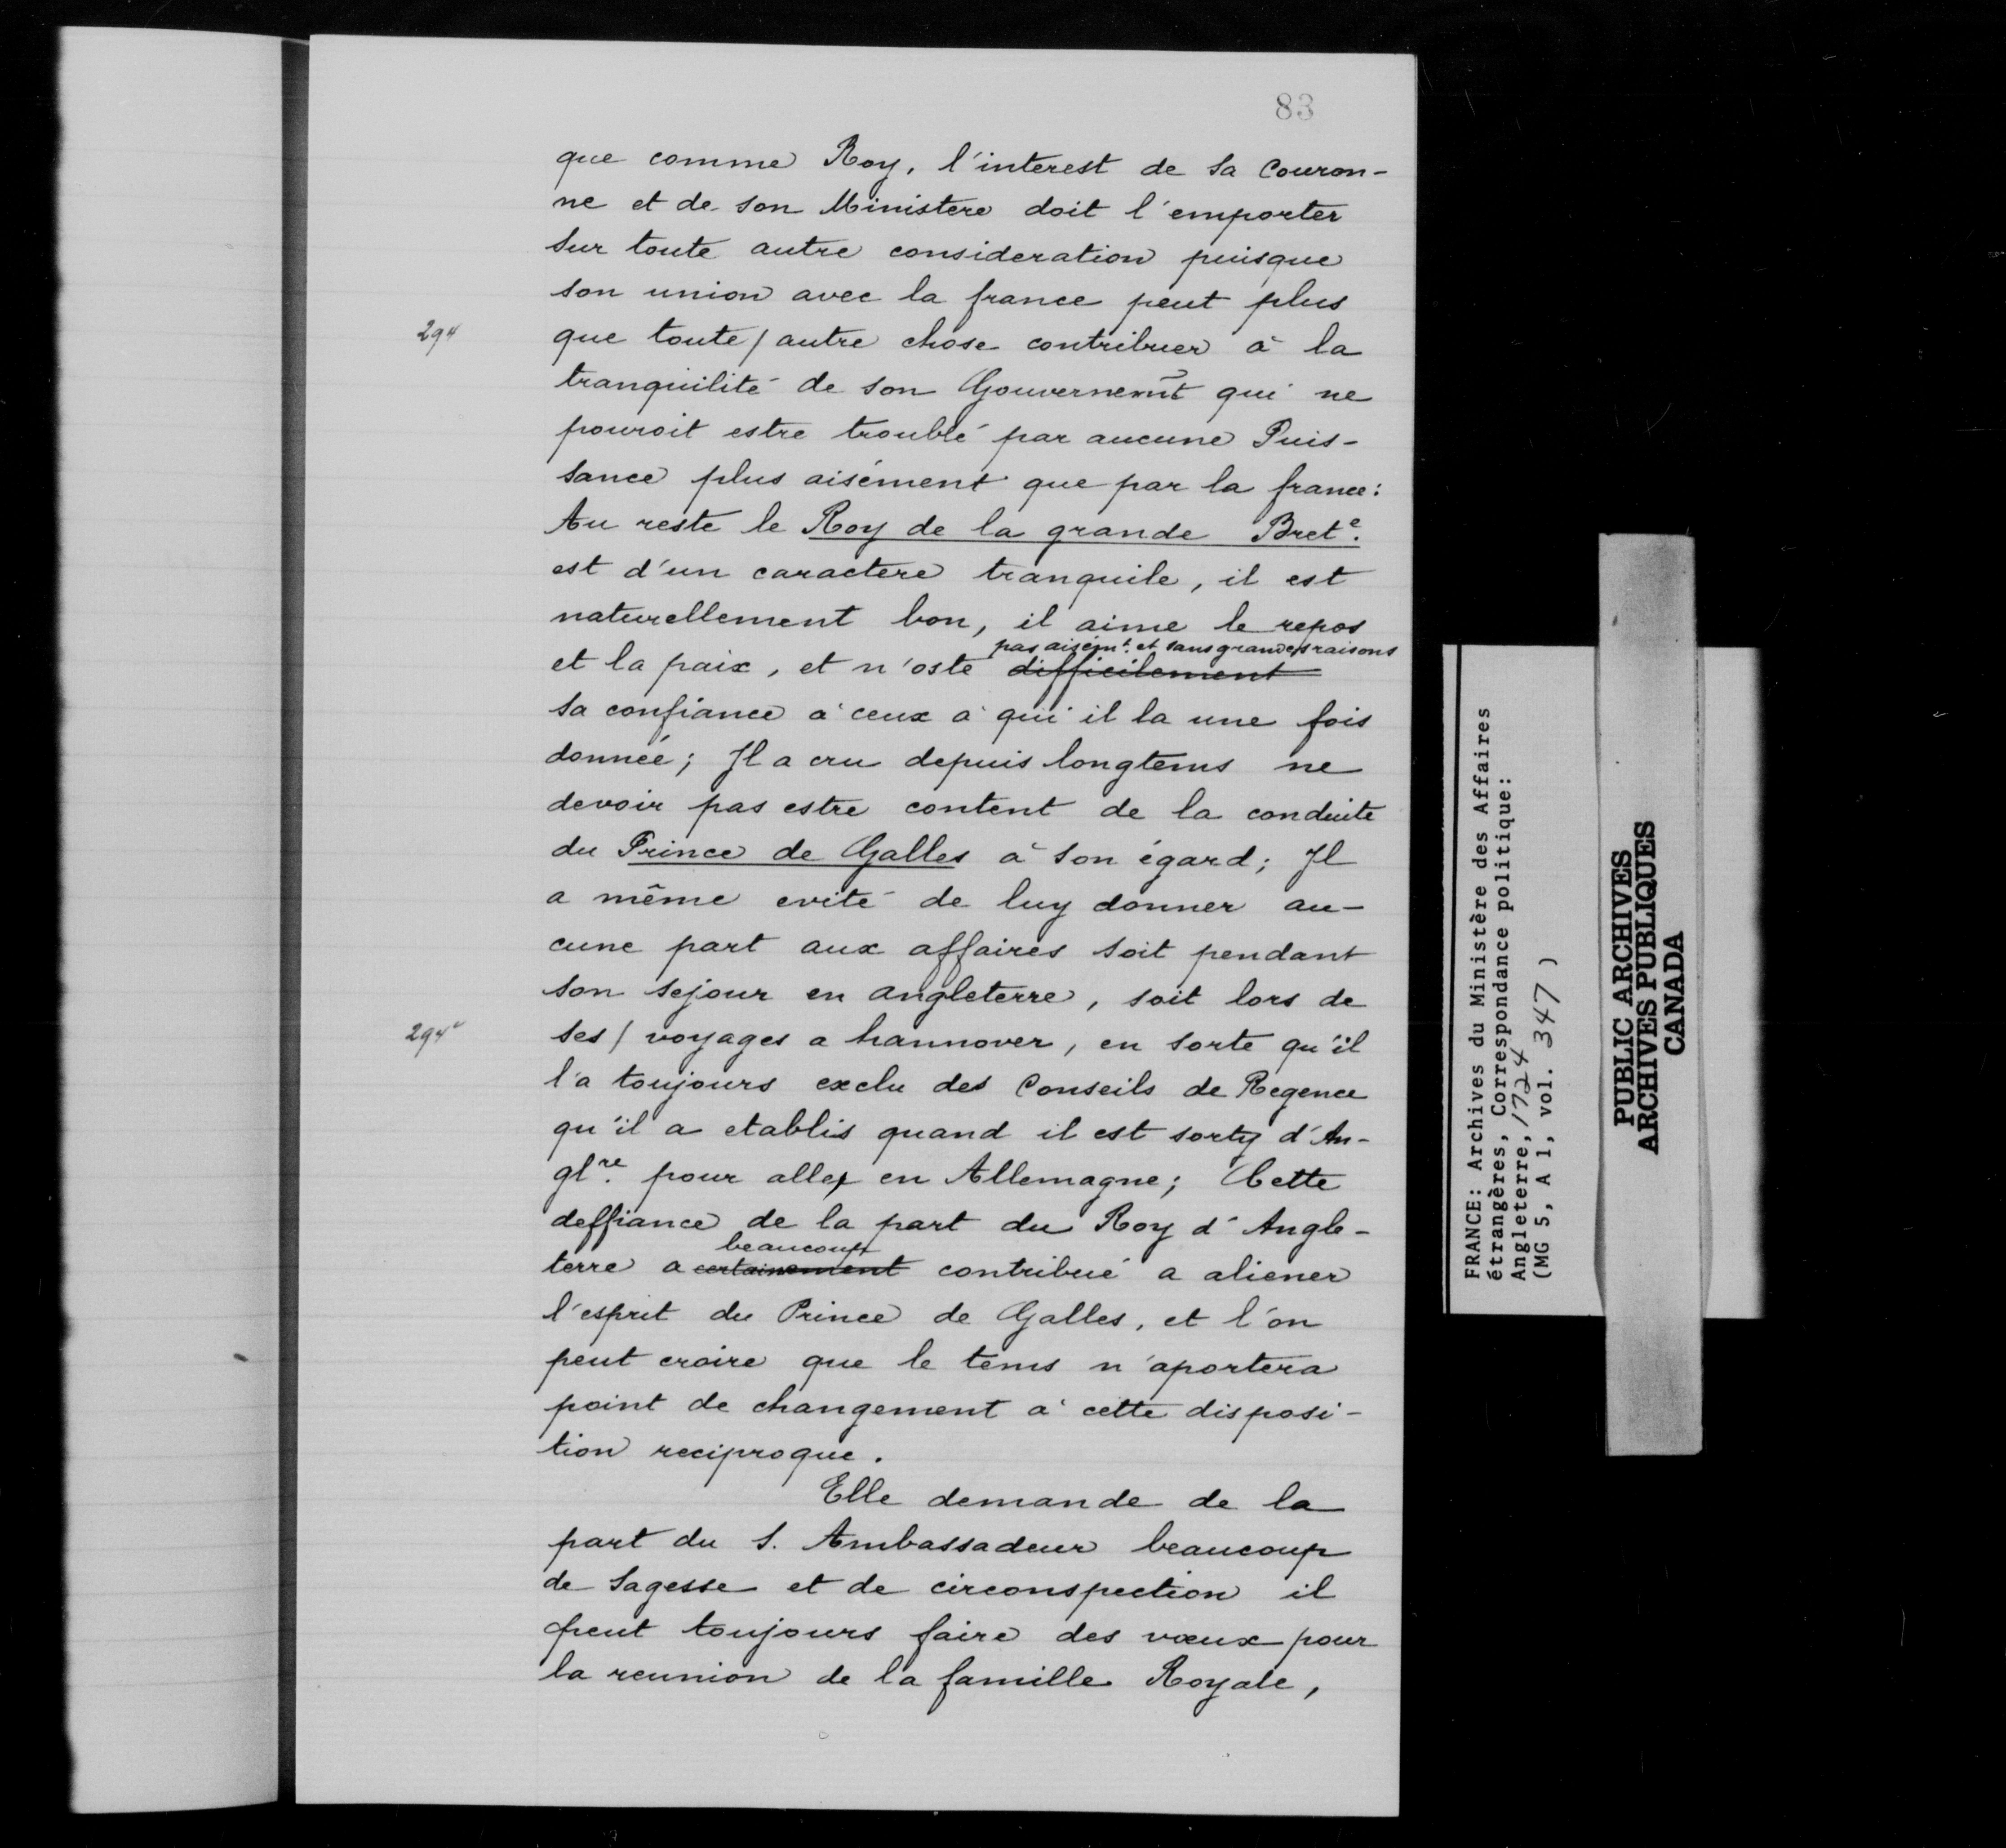 83
que comme Roy, l'interest de sa Couron-
ne et de son Ministere doit l'emporter
sur toute autre consideration puisque
son union avec la france peut plus
294
que toute / autre chose contribuer à la
tranquilité de son Gouvernemt qui ne
pouroit estre troublé par aucune Puis-
sance plus aisément que par la france:
Au reste le Roy de la grande Brete.
est d'un caractere tranquile, il est
naturellement bon, il aime le repos
pas aisémt. et sans grandes raisons
et la paix, et n'oste difficilement
sa confiance à ceux à qui il la une fois
donnée; Il a cru depuis longtems ne
devoir pas estre content de la conduite
du Prince de Galles à son égard; Il
a même evité de luy donner au-
cune part aux affaires soit pendant
son sejour en angleterre, soit lors de
294v
ses / voyages a hannover, en sorte qu'il
l'a toujours exclu des Conseils de Regence
qu'il a etablis quand il est sorty d'An-
glre. pour aller en Allemagne; Cette
deffiance de la part du Roy d'Angle-
beaucoup
terre a certainement contribué a aliener
l'esprit du Prince de Galles, et l'on
peut croire que le tems n'aportera
point de changement à cette disposi-
tion reciproque.
Elle demande de la
part du S. Ambassadeur beaucoup
de sagesse et de circonspection il
peut toujours faire des vœux pour
la reunion de la famille Royale,
FRANCE: Archives du Ministère des Affaires
étrangères, Correspondance politique:
Angleterre, 1724
(MG 5, A 1, vol. 347 )
PUBLIC ARCHIVES
ARCHIVES PUBLIQUES
CANADA